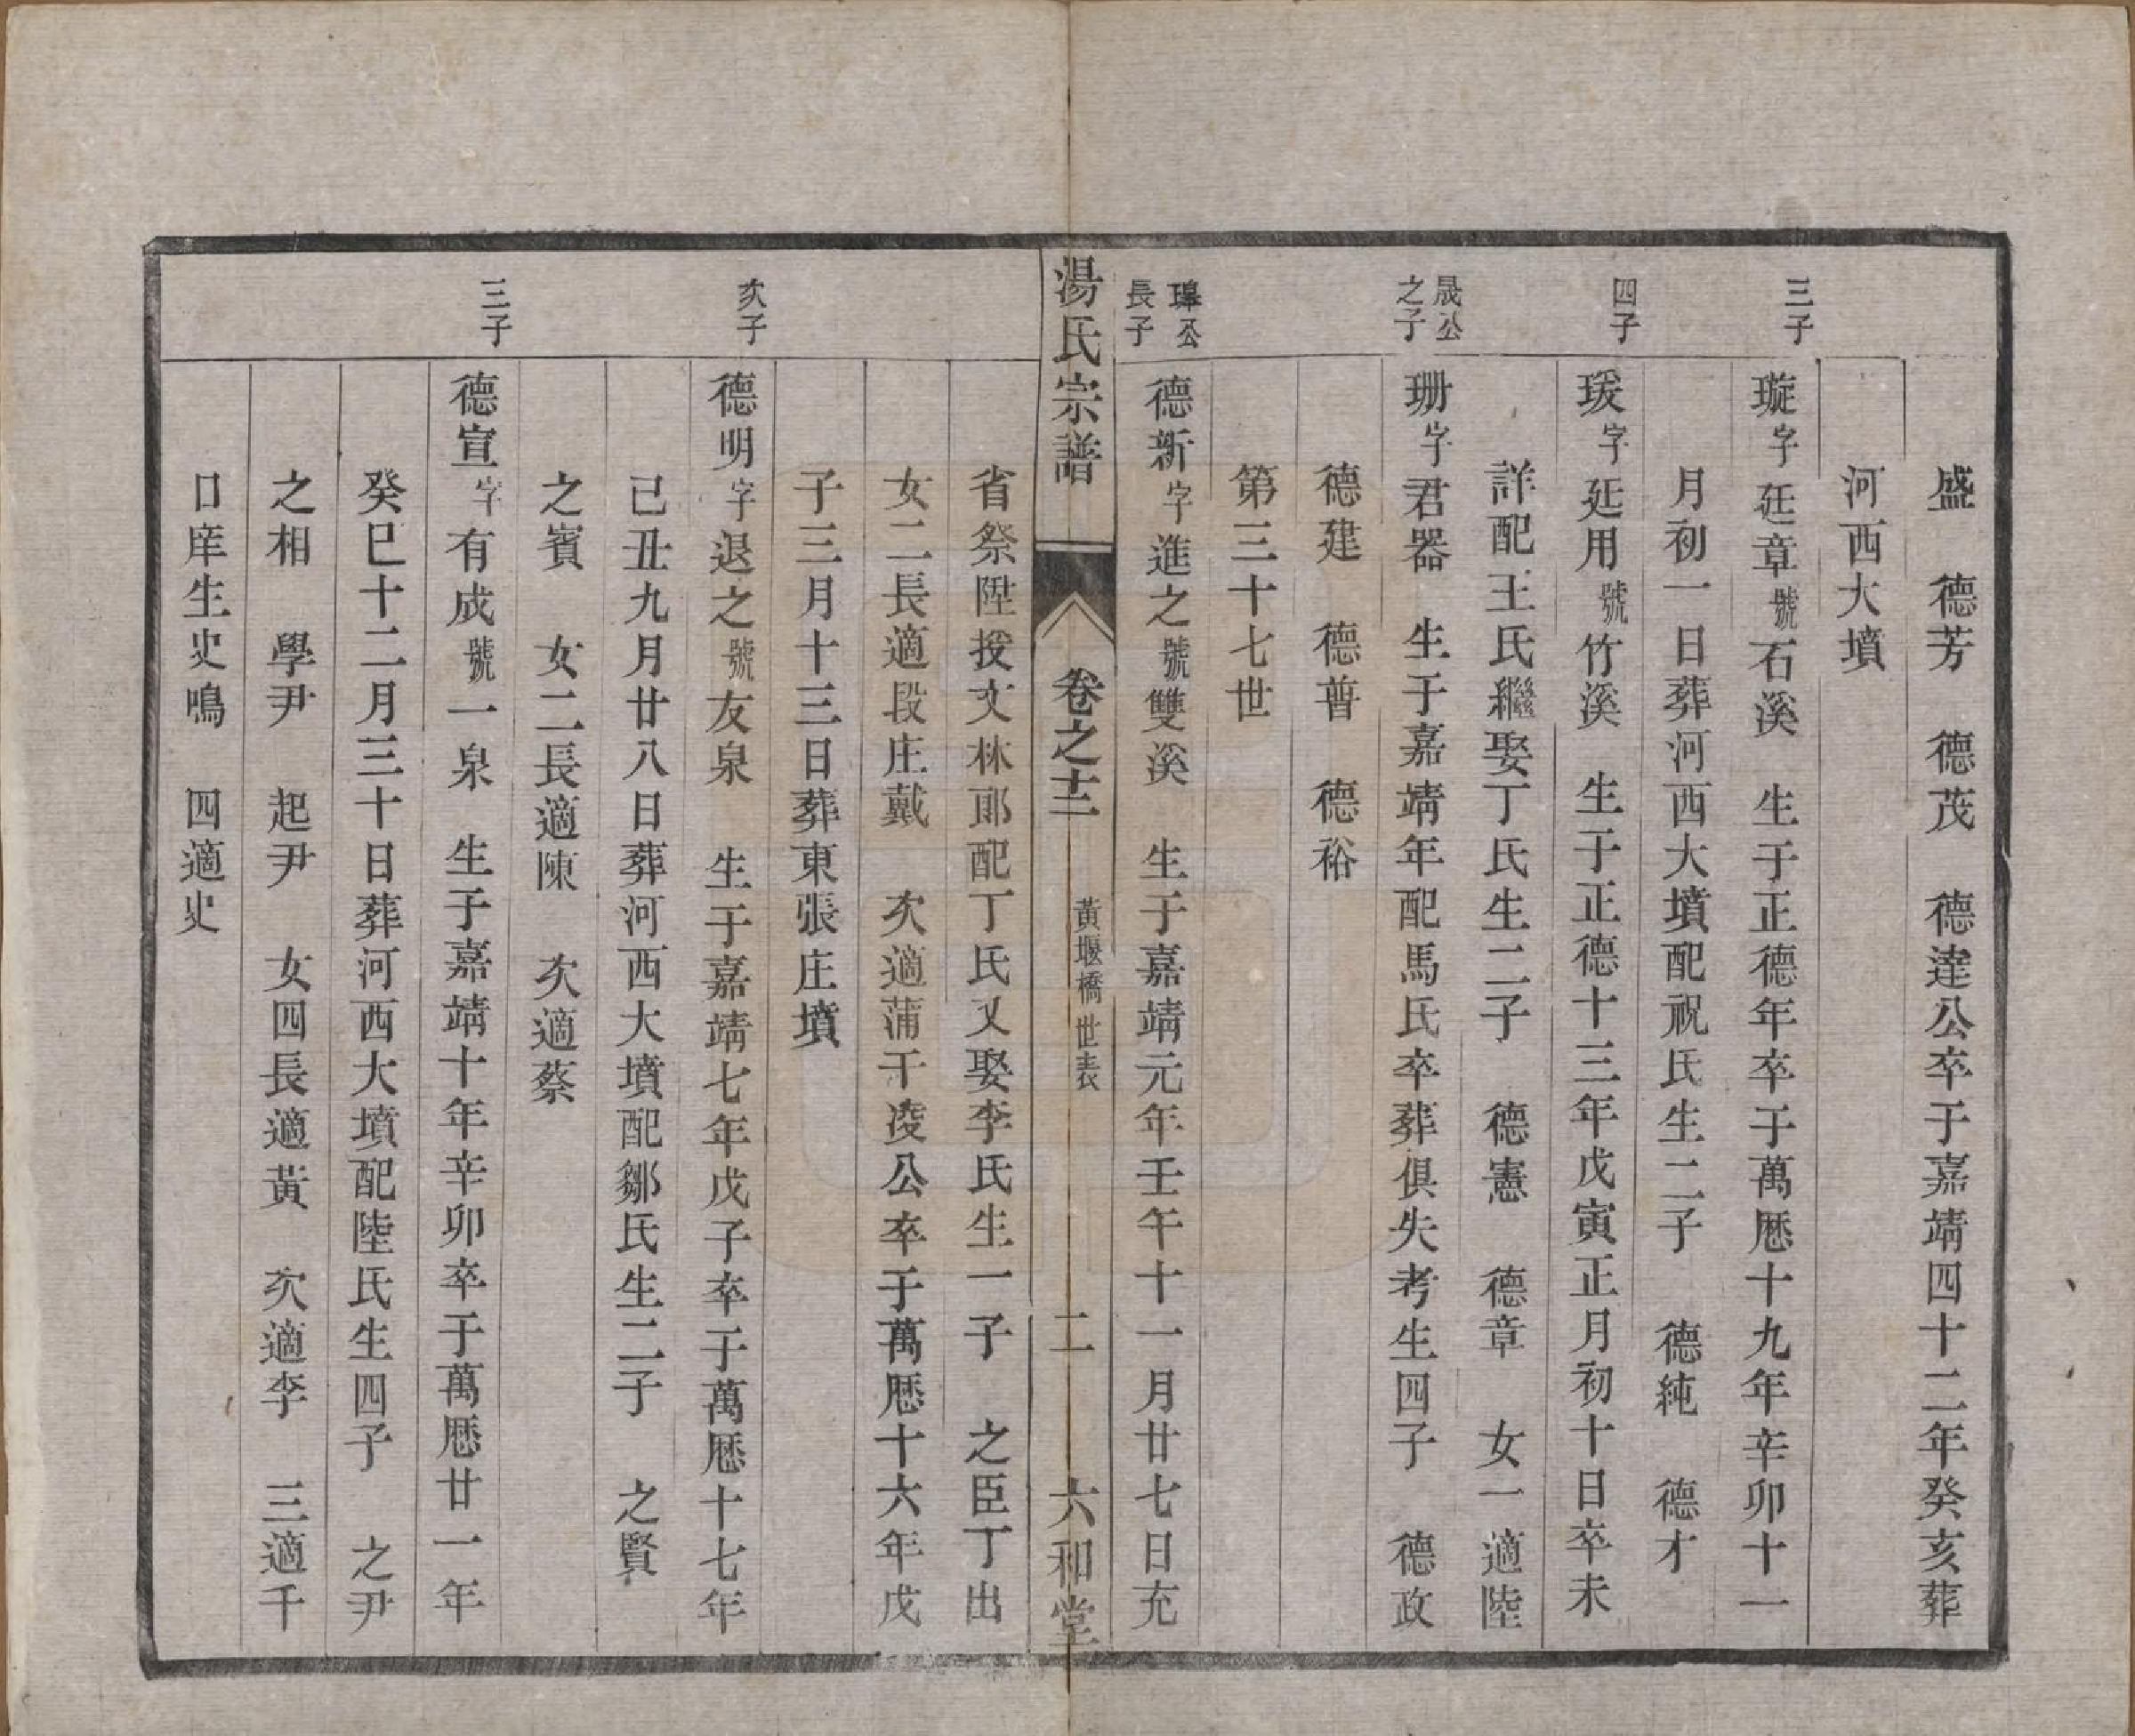 盛　德芳　德茂　德達公卒于嘉靖四十二年癸亥葬
河西大墳
三子
璇字廷章號石溪　生于正德年卒于萬厯十九年辛卯十一
月初一日葬河西大墳配祝氏生二子　德純　德才
四子
瑗字廷用號竹溪　生于正德十三年戊寅正月初十日卒未
詳配王氏繼娶丁氏生二子　德憲　德章　女一適陸
晟公之子
珊字君器　生于嘉靖年配馬氏卒葬俱失考生四子　德政
德建　德普　德裕
第三十七世
公長子
德新字進之號雙溪　生于嘉靖元年壬午十一月廿七日充
湯氏宗譜　卷之十二　黃堰橋世表　二　六和堂
省祭陞授文林郎配丁氏又娶李氏生一子　之臣丁出
女二長適段庄戴　次適蒲干凌公卒于萬厯十六年戊
子三月十三日葬東張庄墳
次子
德明字退之號友泉　生于嘉靖七年戊子卒于萬厯十七年
己丑九月廿八日葬河西大墳配鄒氏生二子　之賢
之賓　女二長適陳　次適蔡
三子
德宣字有成號一泉　生于嘉靖十年辛卯卒于萬厯廿一年
癸巳十二月三十日葬河西大墳配陸氏生四子　之尹
之相　學尹　起尹　女四長適黃　次適李　三適千
口庠生史鳴　四適史